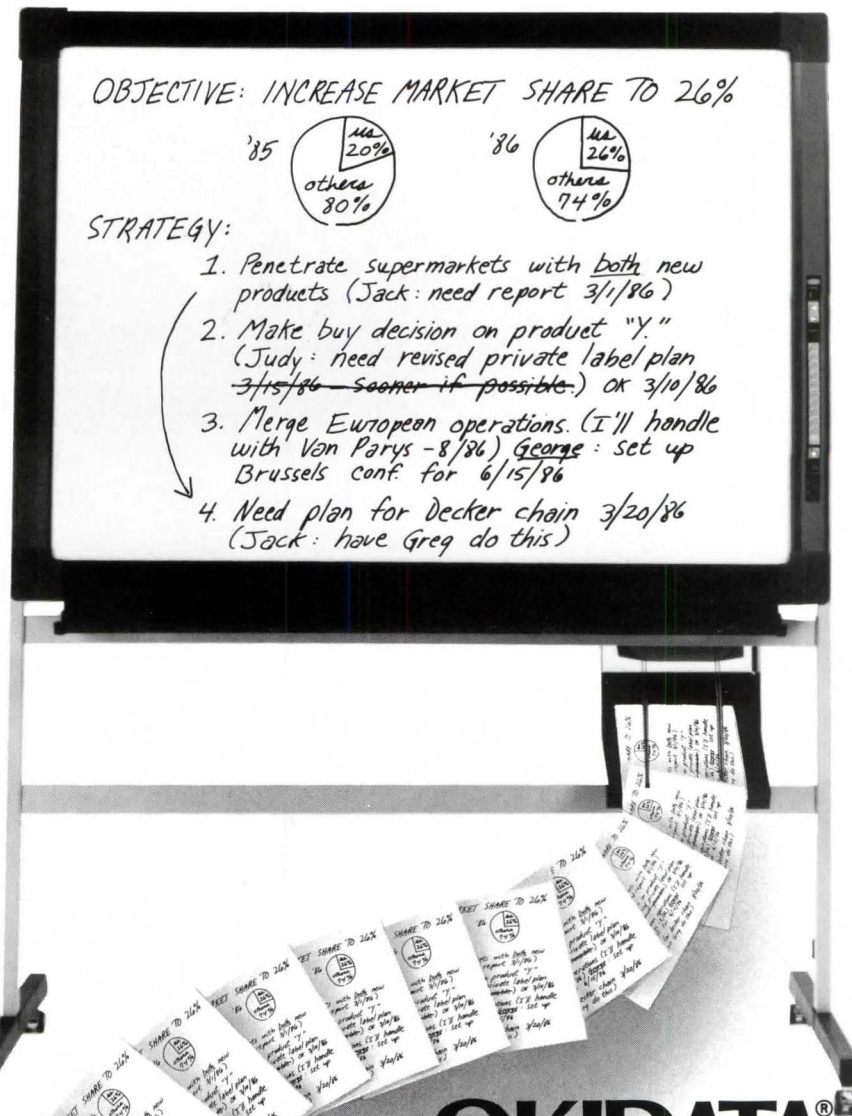 OBJECTIVE: INCREASE MARKET SHARE TO 26%
'85 us 20% others 80%
'86 us 26% others 74%
STRATEGY:
1. Penetrate supermarkets with both new
products (Jack: need report 3/1/86)
2. Make buy decision on product "Y."
(Judy: need revised private label plan
3/15/86 - Sooner if possible.) OK 3/10/86
3. Merge European operations. (I'll handle
with Van Parys - 8/86) George: set up
Brussels conf. for 6/15/86
4. Need plan for Decker chain 3/20/86
(Jack: have Greg do this)
OKIDATA®